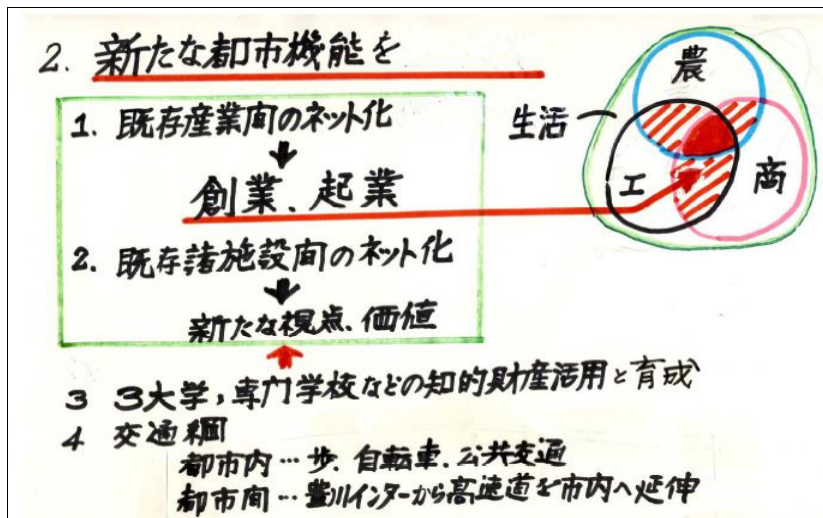 2. 新たな都市機能を
1. 既存産業間のネット化
創業、起業
2. 既存諸施設間のネット化
新たな視点、価値
3 3大学，専門学校などの知的財産活用と育成
4 交通網
都市内…歩、自転車、公共交通
都市間…豊川インターから高速道を市内へ延伸
農
生活
工
商